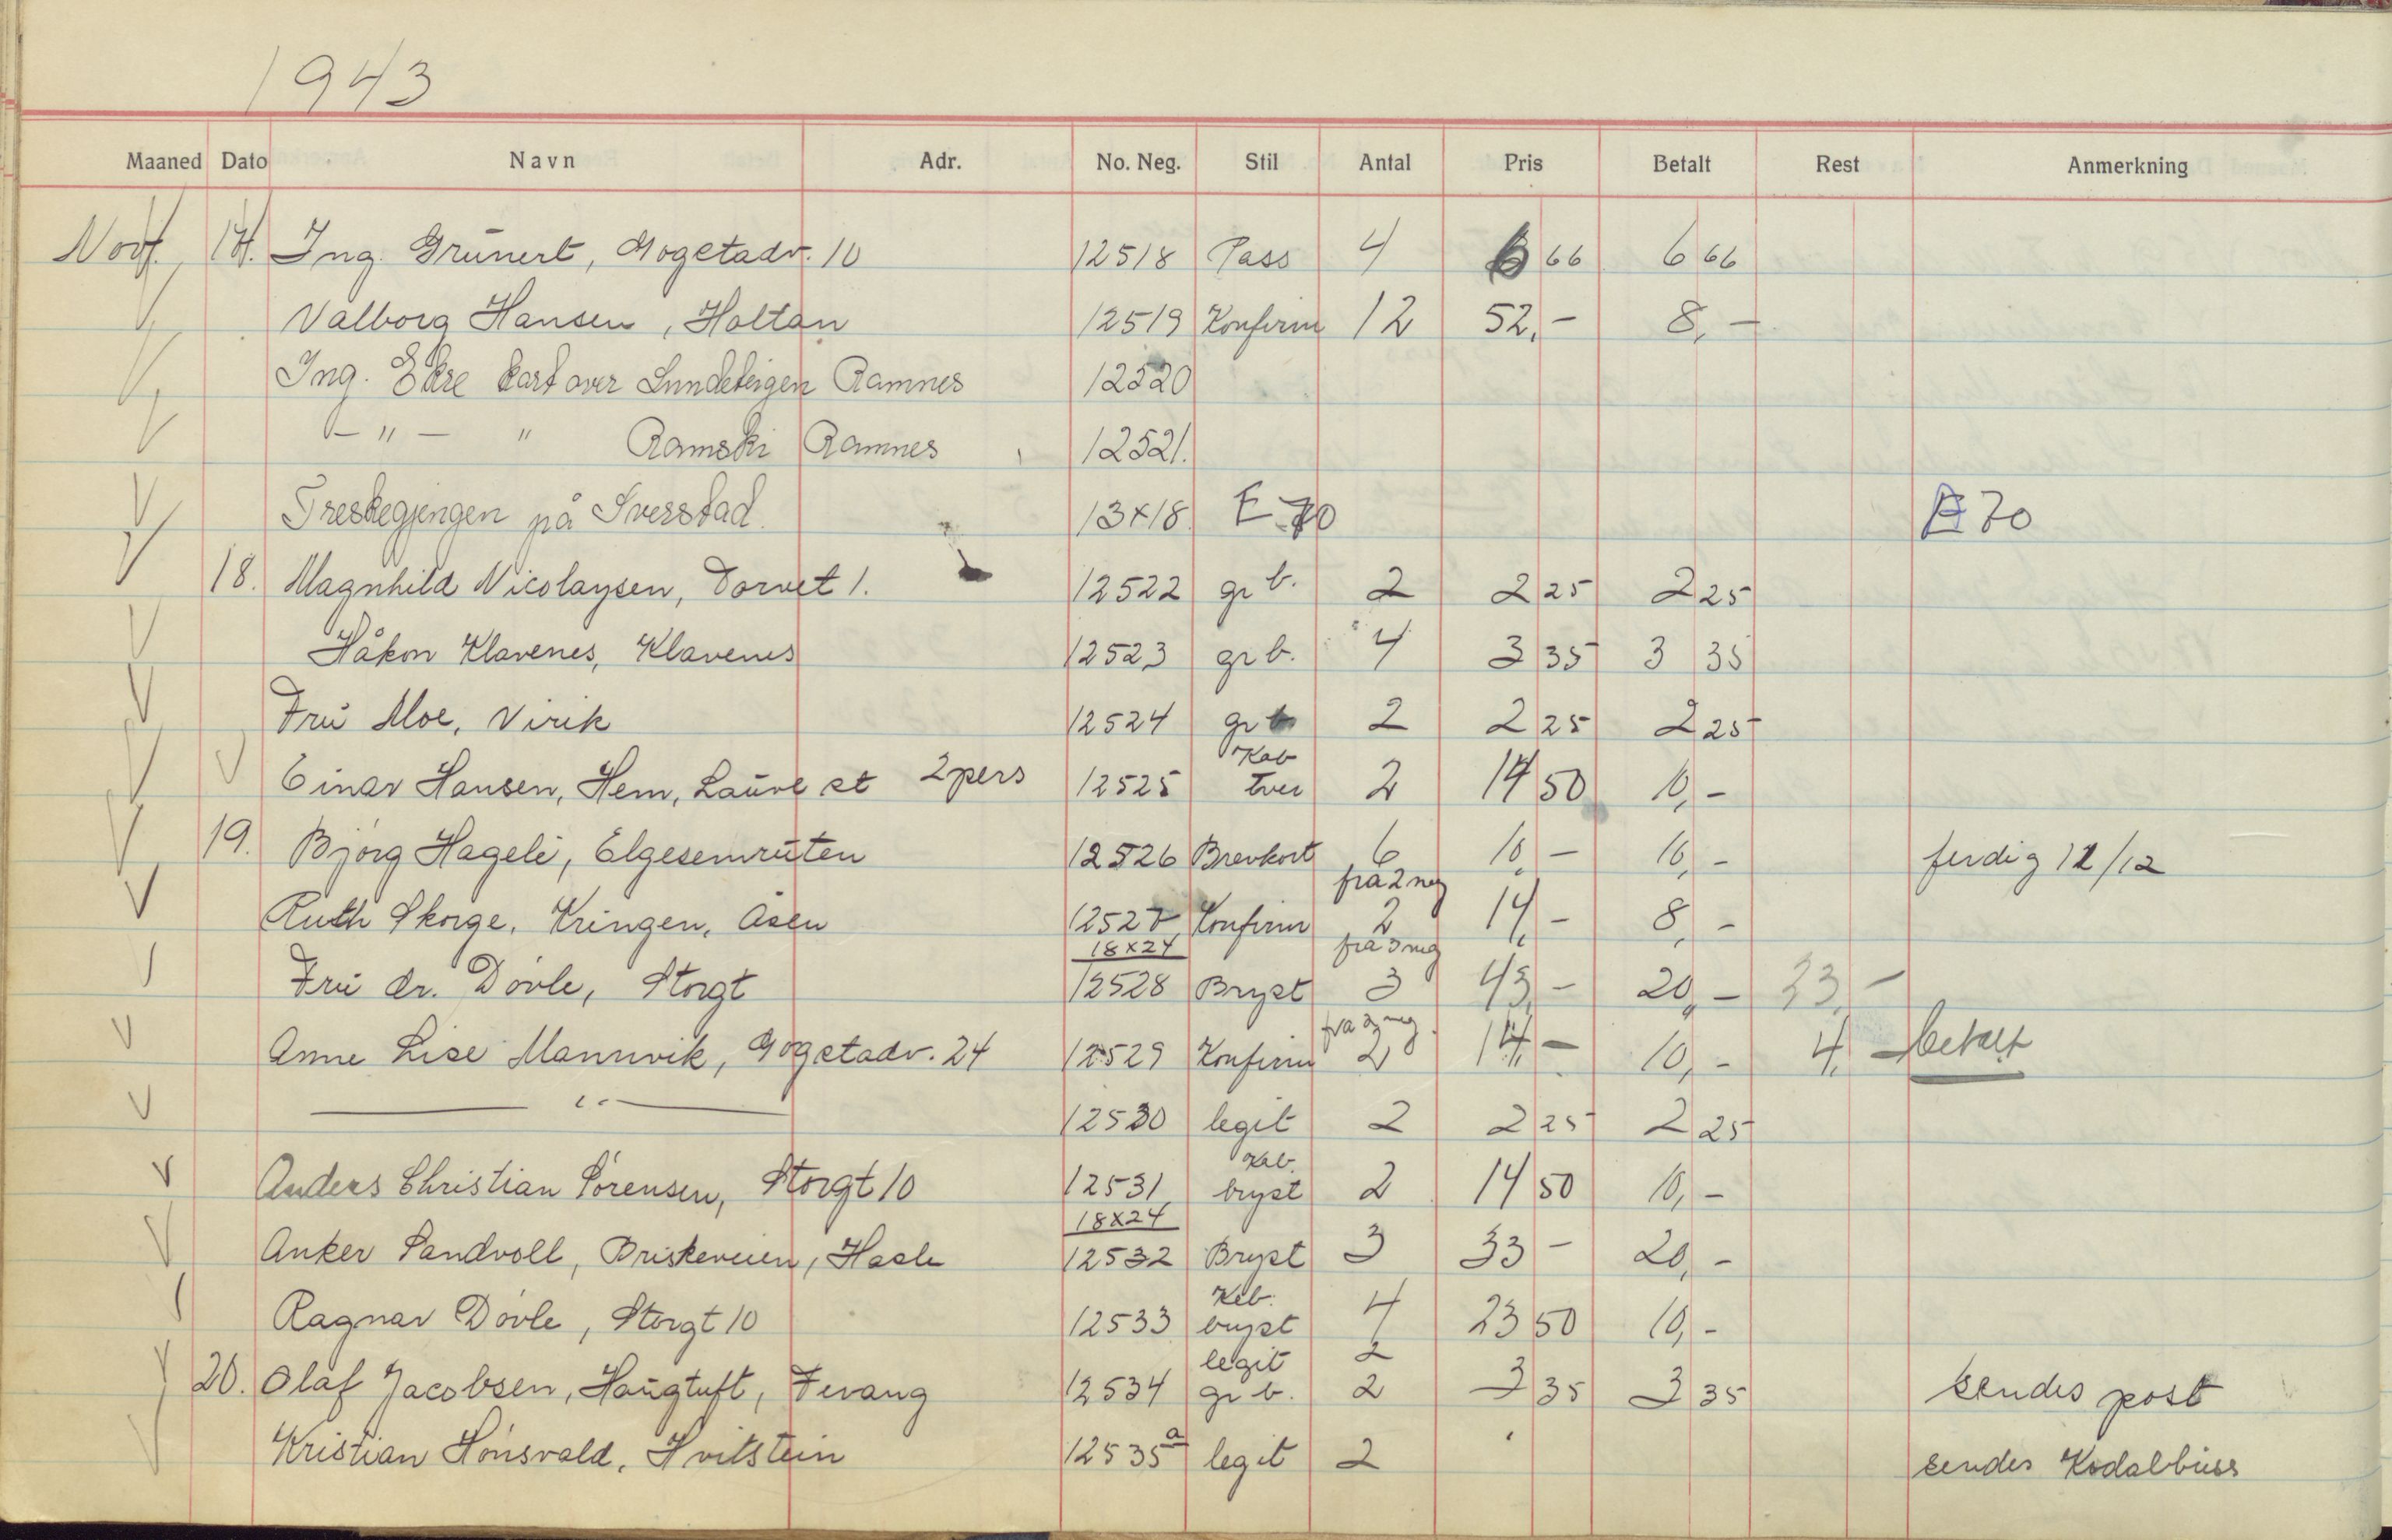 1943
Maaned Dato Navn Adr. No. Neg. Stil Antal Pris Betalt Rest Anmerkning
Nov. 17. Ing. Grünert, Gogstadv. 10 12518 Pass 4 6 66 6 66
Valborg Hansen, Holtan 12519 Konfirm 12 52,- 8,-
Ing. Ekre kart over Sundeteigen Ramnes 12520
-"- " Ramski Ramnes 12521.
Treskegjengen på Sverstad. 13×18. E 70 E 70
18. Magnhild Nicolaysen, Torvet 1. 12522 gr b. 2 2 25 2 25
Håkon Klavenes, Klavenes 12523 gr b. 4 3 35 3 35
Frü Moe, Virik 12524 gr b 2 2 25 2 25
Einar Hansen, Hem, Laüve st 2 pers 12525 Kab tver 2 14 50 10,-
19. Bjørg Hageli, Elgesemrüten 12526 Brevkort 6 10,- 10,- ferdig 12/12
Ruth Skorge, Kringen, Åsen 12527 Konfirm fra 2 neg 2 14,- 8,-
Frü dr. Døvle, Storgt 18×24 12528 Bryst fra 3 neg 3 43,- 20,- 23,-
Anne Lise Mannvik, Gogstadv. 24 12529 Konfirm fra 2 neg. 2 14,- 10,- 4,- betalt
—"— 12530 legit 2 2 25 2 25
Anders Christian Sørensen, Storgt 10 12531 Kab. bryst 2 14 50 10,-
Anker Sandvoll, Briskeveien, Hasle 18×24 12532 Bryst 3 33 - 20,-
Ragnar Døvle, Storgt 10 12533 Kab. bryst 4 23 50 10,-
legit 2
20. Olaf Jacobsen, Haügtuft, Fevang 12534 gr b. 2 3 35 3 35 sendes post
Kristian Hønsvald, Hvitstein 12535a legit 2 sendes Kodalbüss